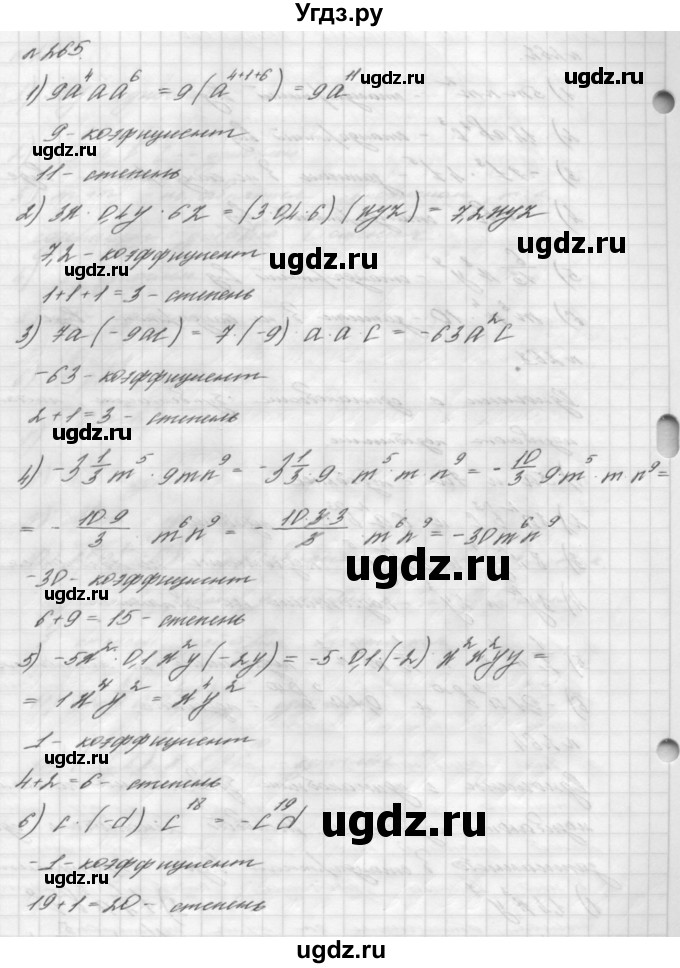 Угдз.ру
n 265.
1) 9a⁴aa⁶ = 9(a⁴⁺¹⁺⁶) = 9a¹¹
ugdz.ru
ugdz.ru
9 - коэффициент
ugdz.ru
11 - степень
2) 3x · 0,4y · 6z = (3·0,4·6)(xyz) = 7,2xyz
ugdz.ru
7,2 - коэффициент
ugdz.ru
ugdz.ru
1+1+1=3 - степень
3) 7a(-9ac) = 7·(-9) a·a c = -63a²c
ugdz.ru
-63 - коэффициент
ugdz.ru
2+1=3 - степень
4) -3 1/3 m⁵ · 9mn⁹ = -3 1/3 · 9 m⁵·m n⁹ = -10/3 9m⁵·m n⁹ =
ugdz.ru
ugdz.ru
= - 10·9/3 m⁶n⁹ = - 10·3·3/3 m⁶n⁹ = -30m⁶n⁹
ugdz.ru
-30 - коэффициент
ugdz.ru
6+9=15 - степень
5) -5x²·0,1x²y(-2y) = -5·0,1·(-2) x²x²yy =
ugdz.ru
= 1x⁴y² = x⁴y²
ugdz.ru
1 - коэффициент
ugdz.ru
4+2=6 - степень
6) c·(-d)·c¹⁸ = -c¹⁹d
ugdz.ru
ugdz.ru
-1 - коэффициент
ugdz.ru
19+1=20 - степень
ugdz.ru